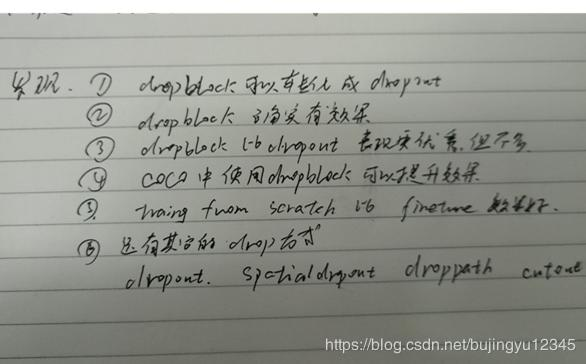 发现. ① dropblock 可以专化成 dropout
② dropblock 确实有效果
③ dropblock 比 dropout 表现更优秀, 但不多
④ COCO 中使用 dropblock 可以提升效果
⑤ traing from scratch 比 finetune 效果好.
⑥ 还有其它的 drop 方式
dropout. spatialdropout droppath cutout
https://blog.csdn.net/bujingyu12345